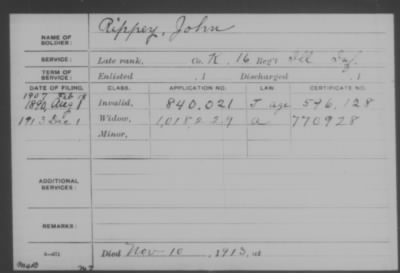 NAME OF SOLDIER: Rippey, John
SERVICE: Late rank, Co. K, 16 Reg't Ill Inf.
TERM OF SERVICE: Enlisted , 1 Discharged , 1
DATE OF FILING. CLASS. APPLICATION NO. LAW. CERTIFICATE NO.
1907 Feb 18
1890, Aug 1 Invalid, 840.021 J age 546,128
1913 Dec 1 Widow, 1,018,229 a 770928
Minor,
ADDITIONAL SERVICES:
REMARKS:
Died Nov-10, 1913, at